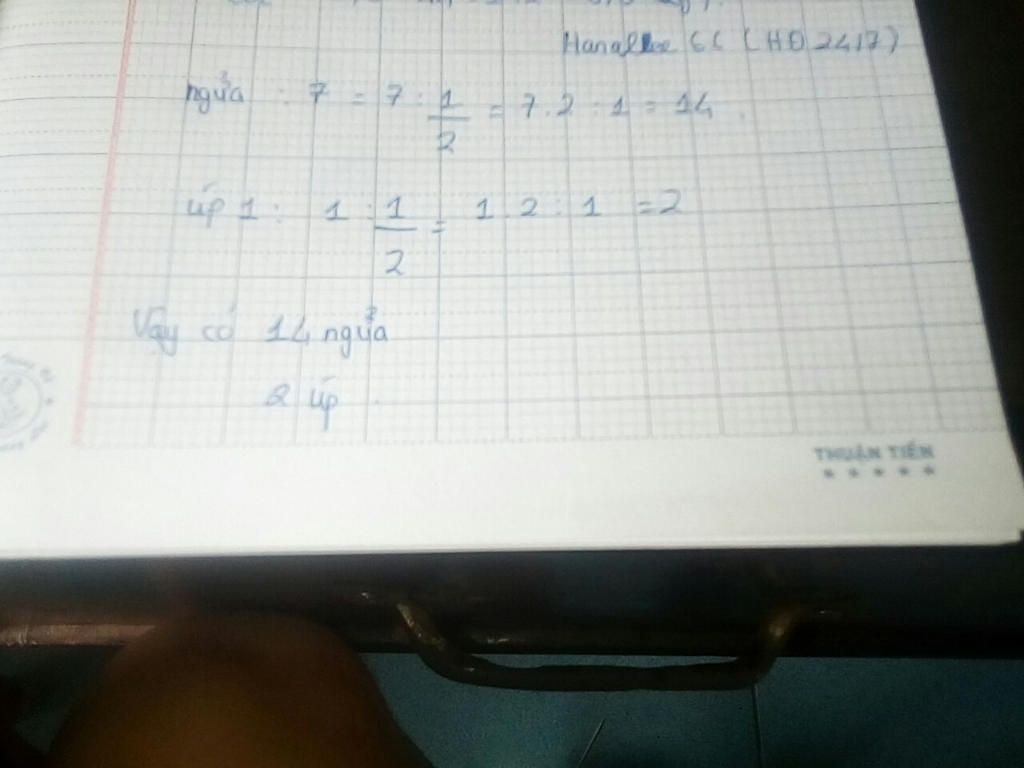 (HĐ 2417)
ngửa : 7 = 7 : 1/2 = 7.2 : 1 = 14.
úp 1 : 1 : 1/2 = 1.2 : 1 = 2
Vậy có 14 ngửa
2 úp.
THUẬN TIẾN